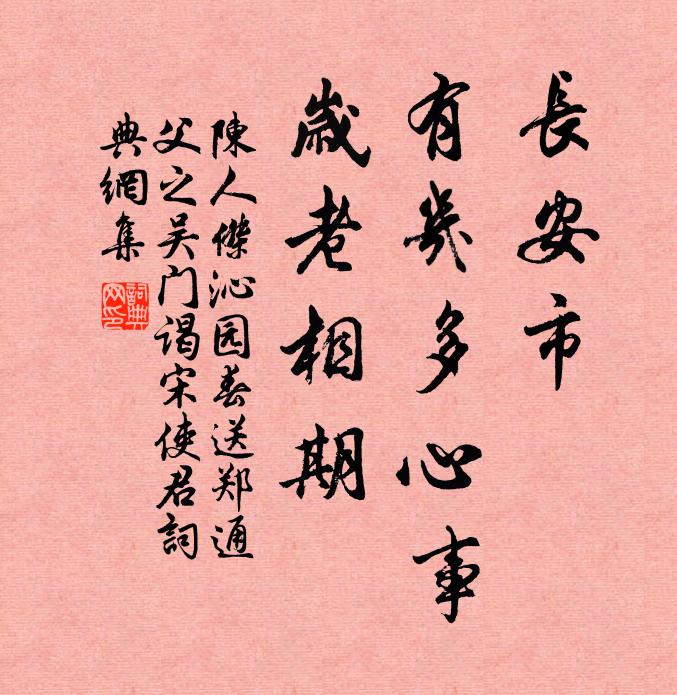 長安市
有幾多心事
歲老相期
陳人傑沁园春送郑通
父之吴门谒宋使君詞
典網集
詞典网印